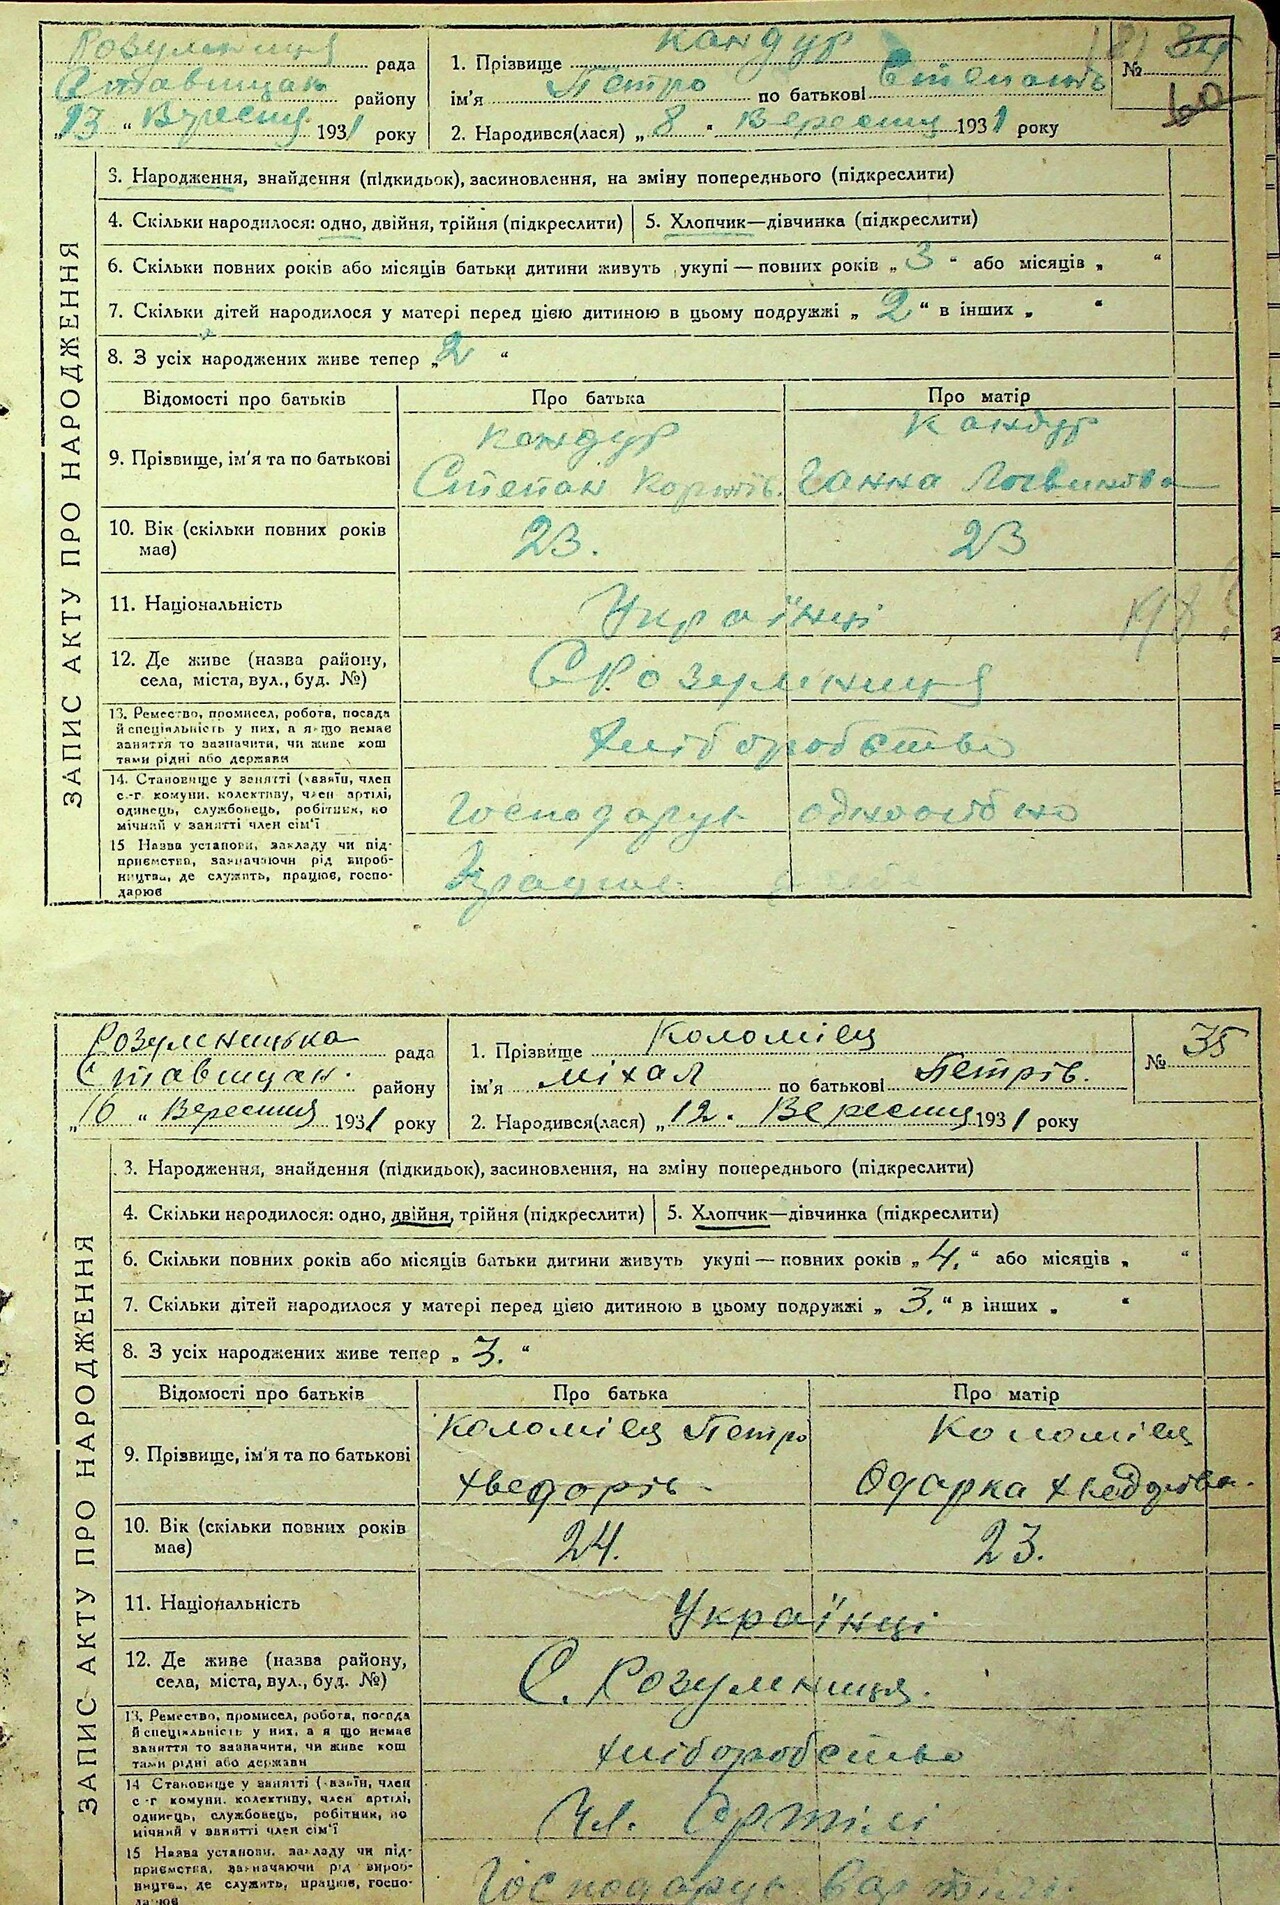 Розумниця рада
Ставищан району
„13 “ Вересня 1931 року
1. Прізвище Кандур
ім'я Петро по батькові Степанів
2. Народився(лася) „ 8 “ Вересня 1931 року
№ 34
60
ЗАПИС АКТУ ПРО НАРОДЖЕННЯ
3. Народження, знайдення (підкидьок), засиновлення, на зміну попереднього (підкреслити)
4. Скільки народилося: одно, двійня, трійня (підкреслити) 5. Хлопчик—дівчинка (підкреслити)
6. Скільки повних років або місяців батьки дитини живуть укупі — повних років „ 3 “ або місяців „ “
7. Скільки дітей народилося у матері перед цією дитиною в цьому подружжі „ 2 “ в інших „ “
8. З усіх народжених живе тепер „ 2 “
Відомості про батьків Про батька Про матір
9. Прізвище, ім'я та по батькові
Кандур
Степан
Кандур
Ганна Логвинова
10. Вік (скільки повних років має) 23. 23
11. Національність Українці
12. Де живе (назва району, села, міста, вул., буд. №) С Розумниця
13. Ремество, промисел, робота, посада
й спеціяльність у них, а якщо немає
заняття то зазначити, чи живе кош
тами рідні або держави
хліборобство
14. Становище у занятті (хазяїн, член
с.-г. комуни, колективу, член артілі,
одинець, службовець, робітник, по
мічний у занятті член сім'ї
Господарує одноосібно
15 Назва установи, закладу чи під-
приємства, зазначаючи рід вироб-
ництва, де служить, працює, госпо-
дарює
Розумницька рада
Ставищан. району
„16 “ Вересня 1931 року
1. Прізвище Коломієц
ім'я Міхал по батькові Петрів.
2. Народився(лася) „12. Вересня 1931 року
№ 35
ЗАПИС АКТУ ПРО НАРОДЖЕННЯ
3. Народження, знайдення (підкидьок), засиновлення, на зміну попереднього (підкреслити)
4. Скільки народилося: одно, двійня, трійня (підкреслити) 5. Хлопчик—дівчинка (підкреслити)
6. Скільки повних років або місяців батьки дитини живуть укупі — повних років „ 4. “ або місяців „ “
7. Скільки дітей народилося у матері перед цією дитиною в цьому подружжі „ 3. “ в інших „ “
8. З усіх народжених живе тепер „ 3. “
Відомості про батьків Про батька Про матір
9. Прізвище, ім'я та по батькові
Коломієц Петро
Хведорів.
Коломієц
Одарка Хведорівна.
10. Вік (скільки повних років має) 24. 23.
11. Національність Українці
12. Де живе (назва району, села, міста, вул., буд. №) С. Розумниця.
13. Ремество, промисел, робота, посада
й спеціяльність у них, а я що немає
заняття то зазначити, чи живе кош
тами рідні або держави
хліборобство
14 Становище у занятті (хазяїн, член
с-г комуни, колективу, член артілі,
одинець, службовець, робітник, по
мічний у занятті член сім'ї
Чл. Артілі
15 Назва установи, закладу чи під-
приємства, зазначаючи рід вироб-
ництва, де служить, працює, госпо-
дарює
Господарує в артілі.